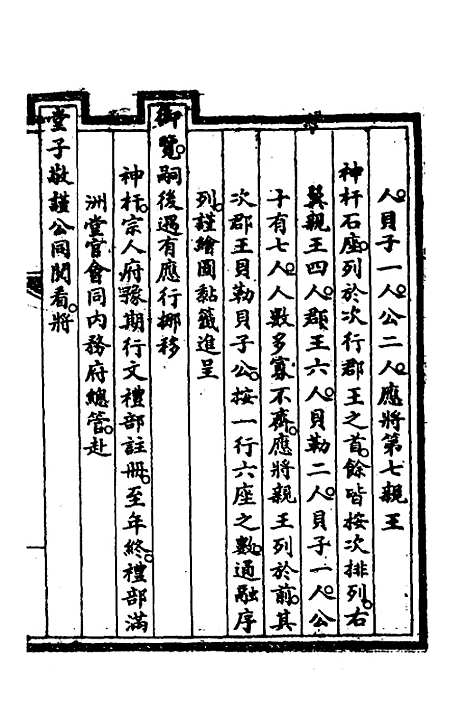 人貝子一人公二人應將第七親王
神杆石座列於次行郡王之首餘皆按次排列右
翼親王四人郡王六人貝勒二人貝子一人公
子有七人人數多寡不齊應將親王列於前其
次郡王貝勒貝子公按一行六座之數通融序
列謹繪圖黏籤進呈
御覽嗣後遇有應行挪移
神杆宗人府豫期行文禮部註冊至年終禮部滿
洲堂官會同內務府總管赴
堂子敬謹公同閱看將